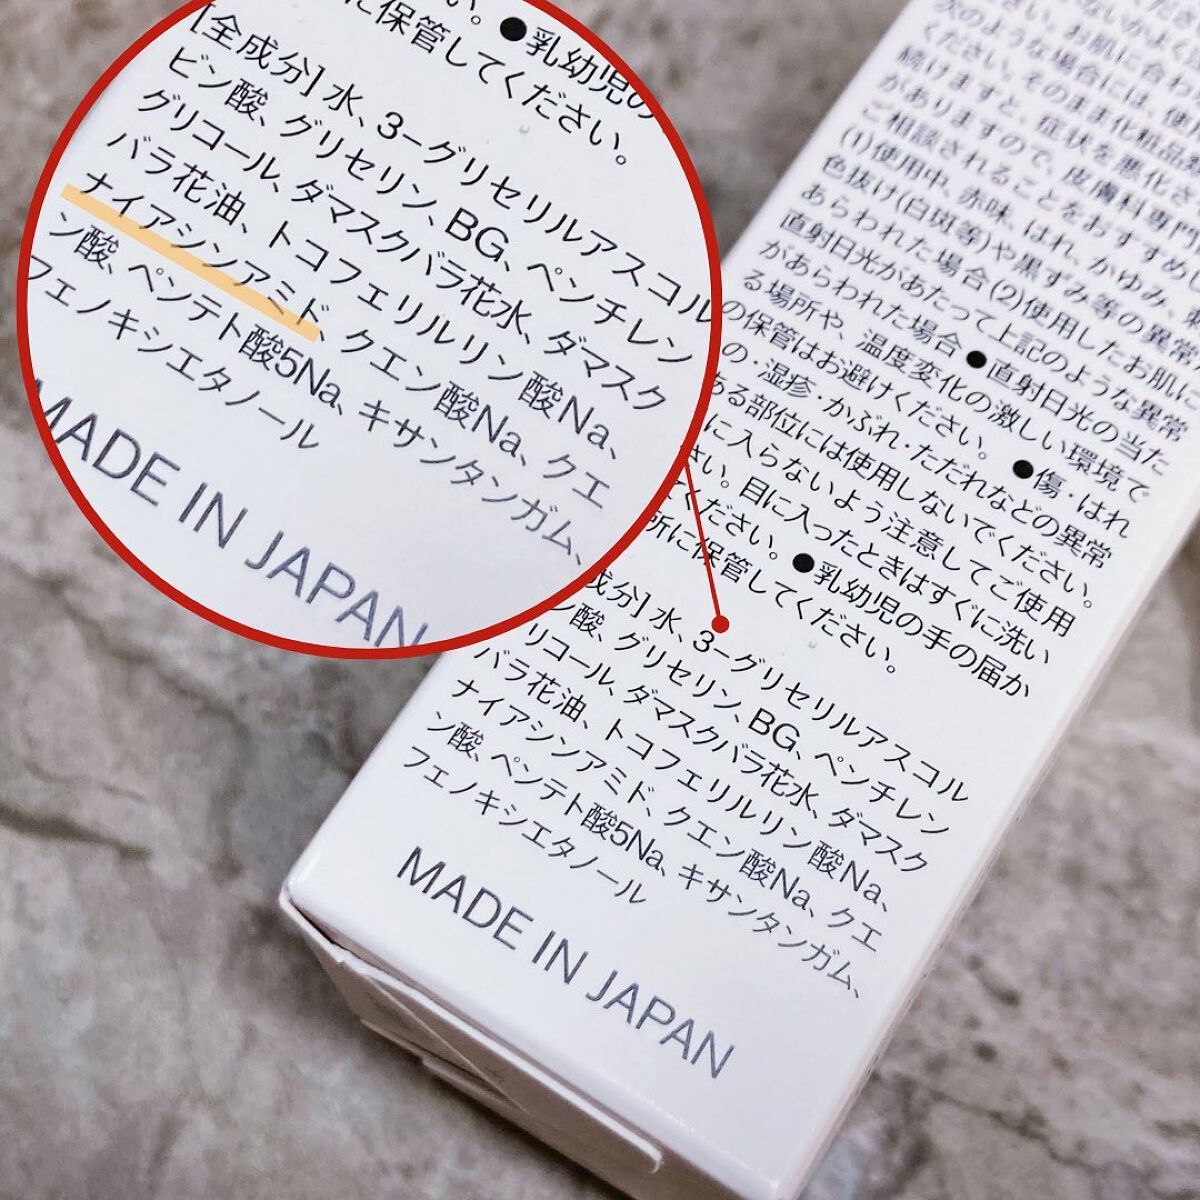 い。●乳幼児の
に保管してください。
[全成分] 水、3-グリセリルアスコル
ビン酸、グリセリン、BG、ペンチレン
グリコール、ダマスクバラ花水、ダマスク
バラ花油、トコフェリルリン酸Na、
ナイアシンアミド、クエン酸Na、クエ
ン酸、ペンテト酸5Na、キサンタンガム、
フェノキシエタノール
MADE IN JAPAN
ないかよく
さい。お肌に合わ
次のような場合には、使
ください。そのまま化粧品
続けますと、症状を悪化さ
がありますので、皮膚科専門
ご相談されることをおすすめ
(1)使用中、赤味、はれ、かゆみ、
色抜け(白斑等)や黒ずみ等の異常
あらわれた場合(2)使用したお肌に
直射日光があたって上記のような異常
があらわれた場合●直射日光の当た
る場所や、温度変化の激しい環境で
の保管はお避けください。●傷・はれ
の・湿疹・かぶれ・ただれなどの異常
ある部位には使用しないでください。
に入らないよう注意してご使用
さい。目に入ったときはすぐに洗い
てください。●乳幼児の手の届か
所に保管してください。
成分] 水、3-グリセリルアスコル
ン酸、グリセリン、BG、ペンチレン
リコール、ダマスクバラ花水、ダマスク
バラ花油、トコフェリルリン酸Na、
ナイアシンアミド、クエン酸Na、クエ
ン酸、ペンテト酸5Na、キサンタンガム、
フェノキシエタノール
MADE IN JAPAN